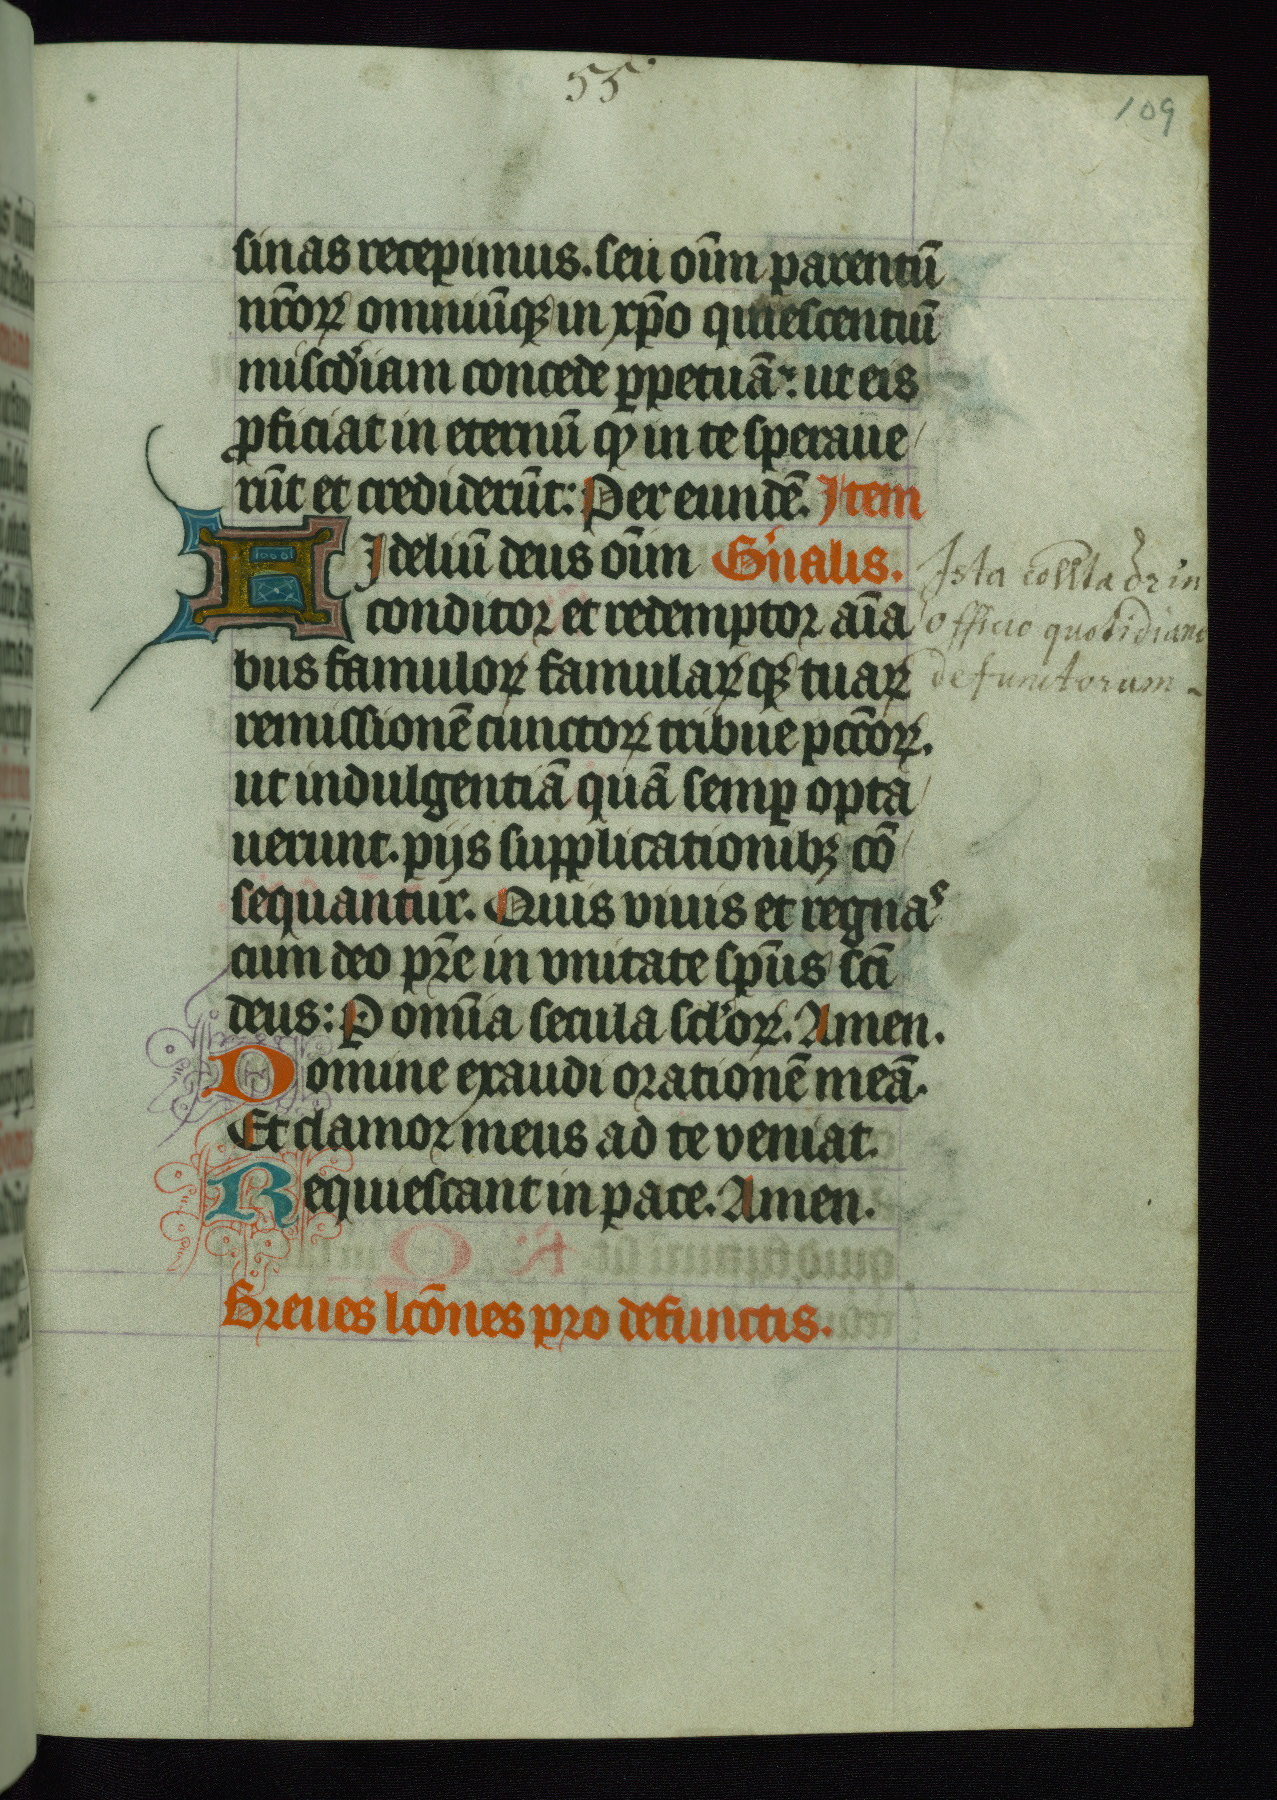 55.
109
sinas recepimus. seu oīm parentū
nr̄oꝝ omniūqꝫ in xp̄o quiescentiū
misc̄diam concede ꝑpetuā: ut eis
ꝓficiat in eternū ꝙ in te speraue/
rūt et crediderūt: Per eundē. Item
FIdeliū deus oīm Gn̄alis.
conditor et redemptor aīa
bus famuloꝝ famulaꝝqꝫ tuaꝝ
remissionē cunctoꝝ tribue pcc̄oꝝ.
ut indulgentiā quā semꝑ opta/
uerunt. pijs supplicationibꝫ cō/
sequantur. Quis viuis et regnas
cum deo pr̄e in vnitate sp̄us sc̄i
deus: P omīa secula scl̓oꝝ. Amen.
Domine exaudi orationē meā.
Et clamor meus ad te veniat.
Requiescant in pace. Amen.
Breues lc̄ōnes pro defunctis.
Ista collta dr in
officio quotidiano
defunctorum -